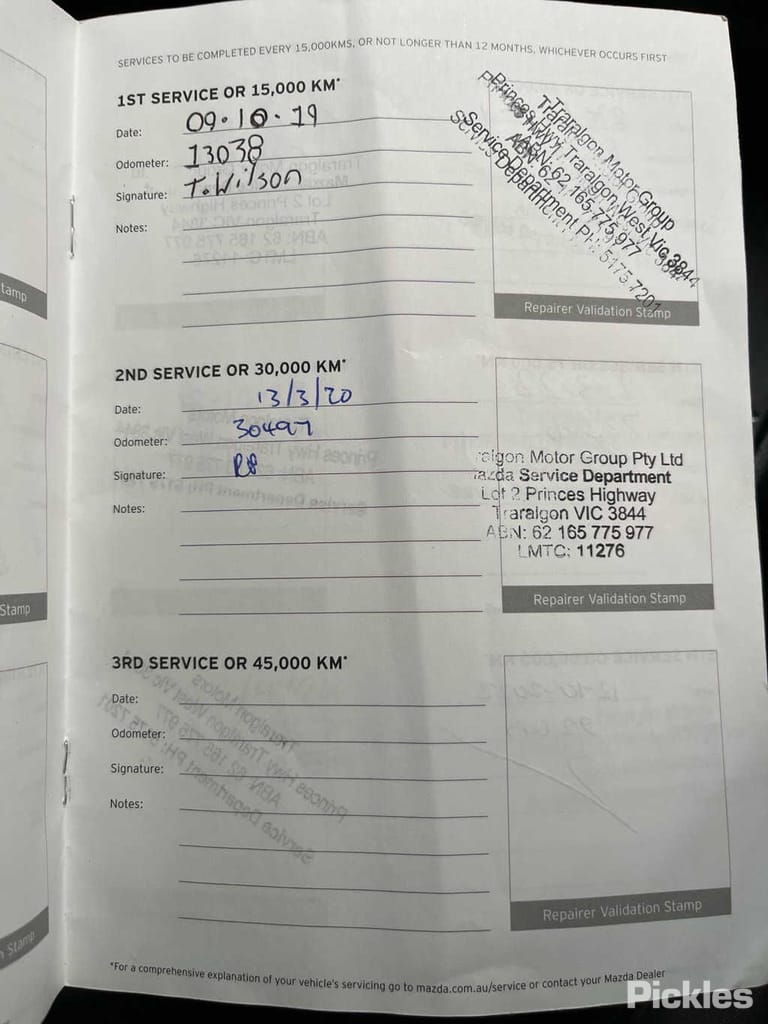 SERVICES TO BE COMPLETED EVERY 15,000KMS, OR NOT LONGER THAN 12 MONTHS, WHICHEVER OCCURS FIRST
1ST SERVICE OR 15,000 KM*
Date: 09.10.19
Odometer: 13038
Signature: T.Wilson
Notes:
Traralgon Motor Group
Princes Hwy Traralgon West Vic 3844
ABN: 62 165 775 977
Service Department PH: 5175 7201
Repairer Validation Stamp
2ND SERVICE OR 30,000 KM*
Date: 13/3/20
Odometer: 30497
Signature:
Notes:
ralgon Motor Group Pty Ltd
azda Service Department
Lot 2 Princes Highway
Traralgon VIC 3844
ABN: 62 165 775 977
LMTC: 11276
Repairer Validation Stamp
3RD SERVICE OR 45,000 KM*
Date:
Odometer:
Signature:
Notes:
Repairer Validation Stamp
*For a comprehensive explanation of your vehicle's servicing go to mazda.com.au/service or contact your Mazda Dealer
tamp
Stamp
n Stamp
Pickles